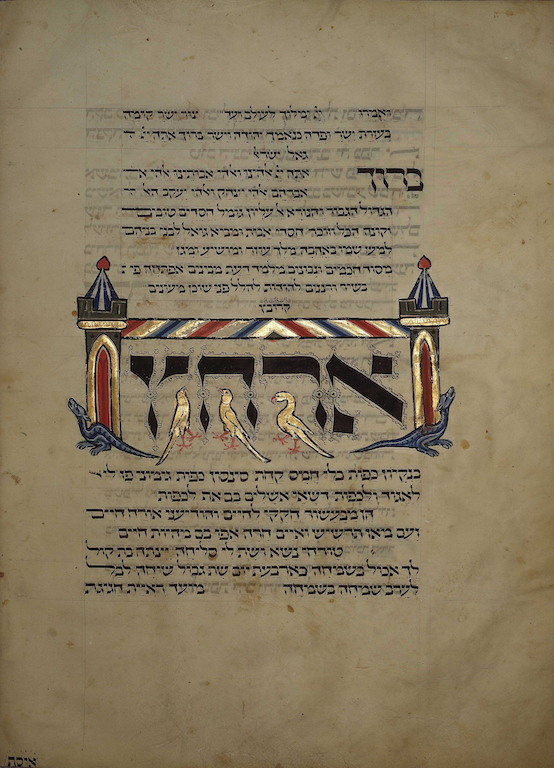 ואמרו יי ימלוך לעולם ועד צור ישר קומה
בעזרת ישר ופדה כנאמך יהודה וישר ברוך אתה יי
גאל ישרא
ברוך אתה יי אלהינו ואלהי אבותינו אלהי
אברהם אלהי יצחק ואלהי יעקב האל
הגדול הגבור והנורא אל עליון גומל חסדים טובים
וקונה הכל וזוכר חסדי אבות ומביא גואל לבני בניהם
למען שמו באהבה מלך עוזר ומושיע ומגן
מסוד חכמים ונבונים מלמד דעת מבינים אפתחה פי
בשיר ורננים להודות להלל פני שוכן מעונים
קרובץ
ארחץ
בנקיון כפות כלי חמים קחת סינסין כפות
לאגוד ולכפות דשאי אשלים בם את לכפות
הן מבעשור חקקי לחיים והודיעני אורח חיים
ועם מאז תרשיש ואיים הרה אפו בם מהיות חיים
טורחי נשא ושת לי סליחה
לך אבוא בשמיחה כארבעת יום שת גבול שיחה
לערב שמיחה בשמיחה מועד ראיית חגיגת